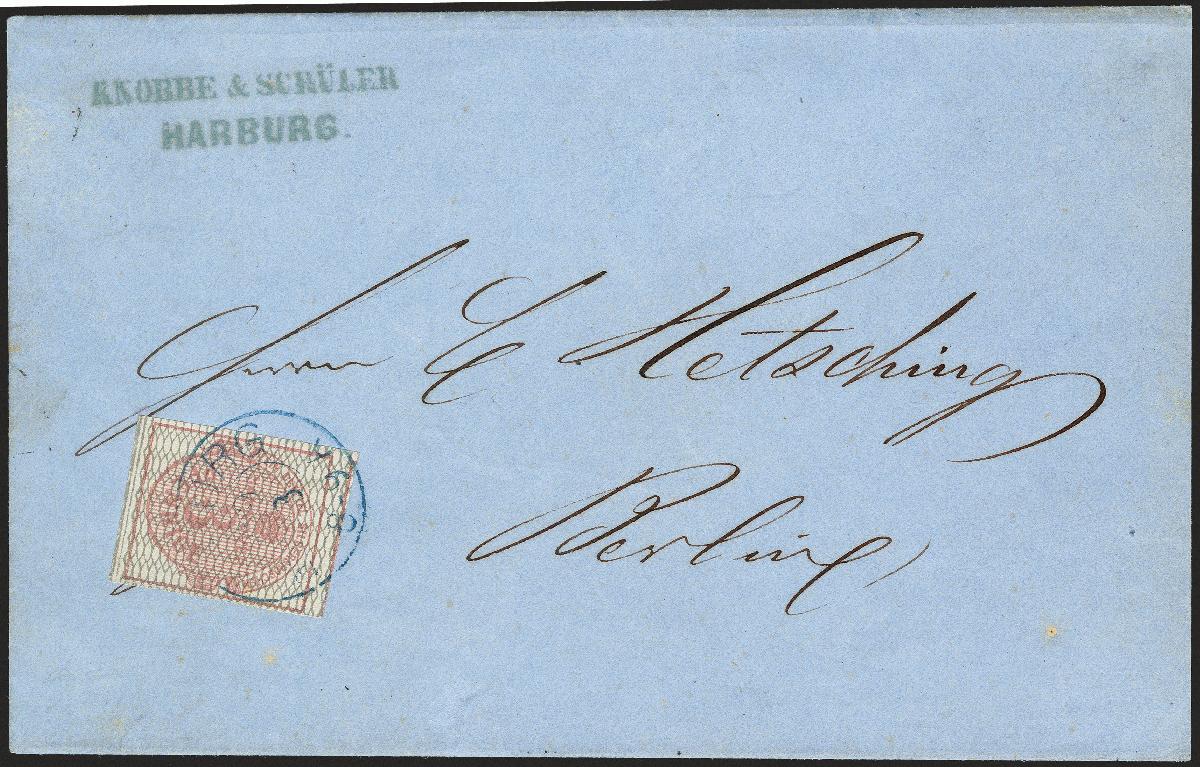 KNOBBE & SCHÜLER
HARBURG.
Herrn E Hetsching
Berlin